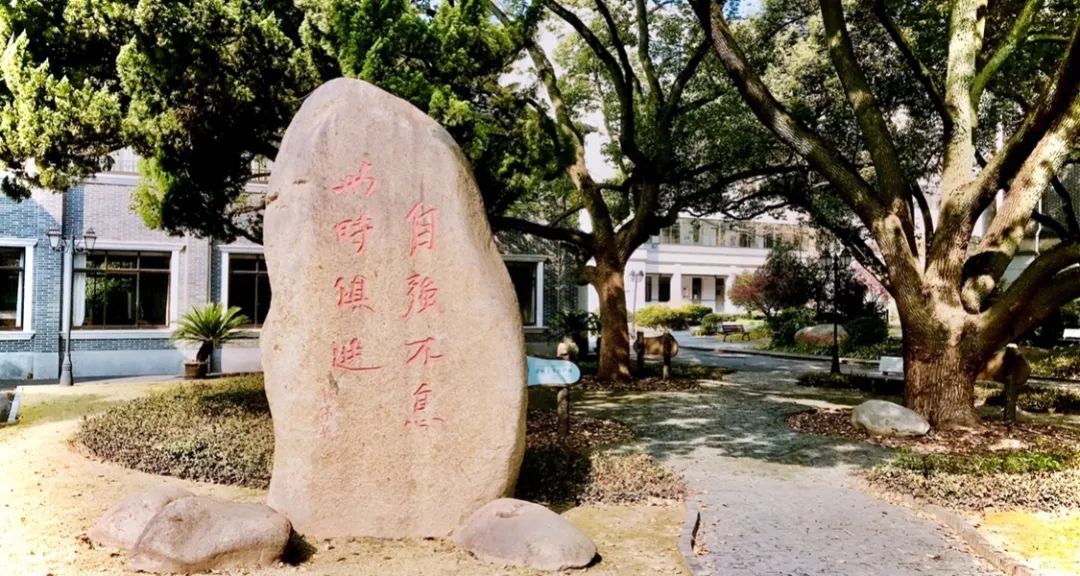 自強不息
与時俱進